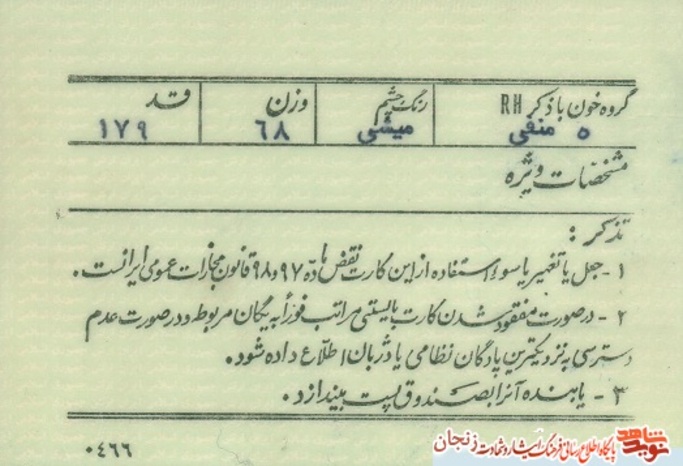 گروه خون با ذکر RH رنگ چشم وزن قد
o منفی میشی ٦٨ ١٧٩
مشخصات ویژه
تذکر :
١- جعل یا تغییر یا سوء استفاده از این کارت نقض ماده ٩٧ و ٩٨ قانون مجازات عمومی ایرانست .
٢- در صورت مفقود شدن کارت بایستی مراتب فوراً به یگان مربوط و در صورت عدم
دسترسی به نزدیکترین پادگان نظامی یا دژبان اطلاع داده شود .
٣- یابنده آنرا بصندوق پست بیندازد .
٠٤٦٦
نوید شاهد پایگاه اطلاع رسانی فرهنگ ایثار و شهادت زنجان